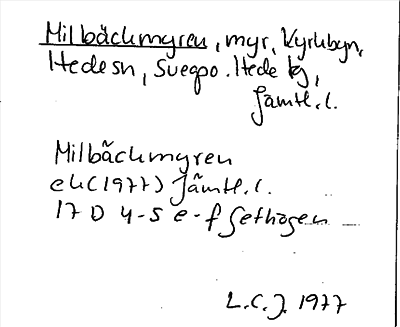 Milbäckmyren, myr, Kyrkbyn,
Hede sn, Svegpo. Hede tg,
Jämtl.l.
Milbäckmyren
ek (1977) Jämtl.l.
17 D 4-5 e-f Gethögen
L.C.J. 1977